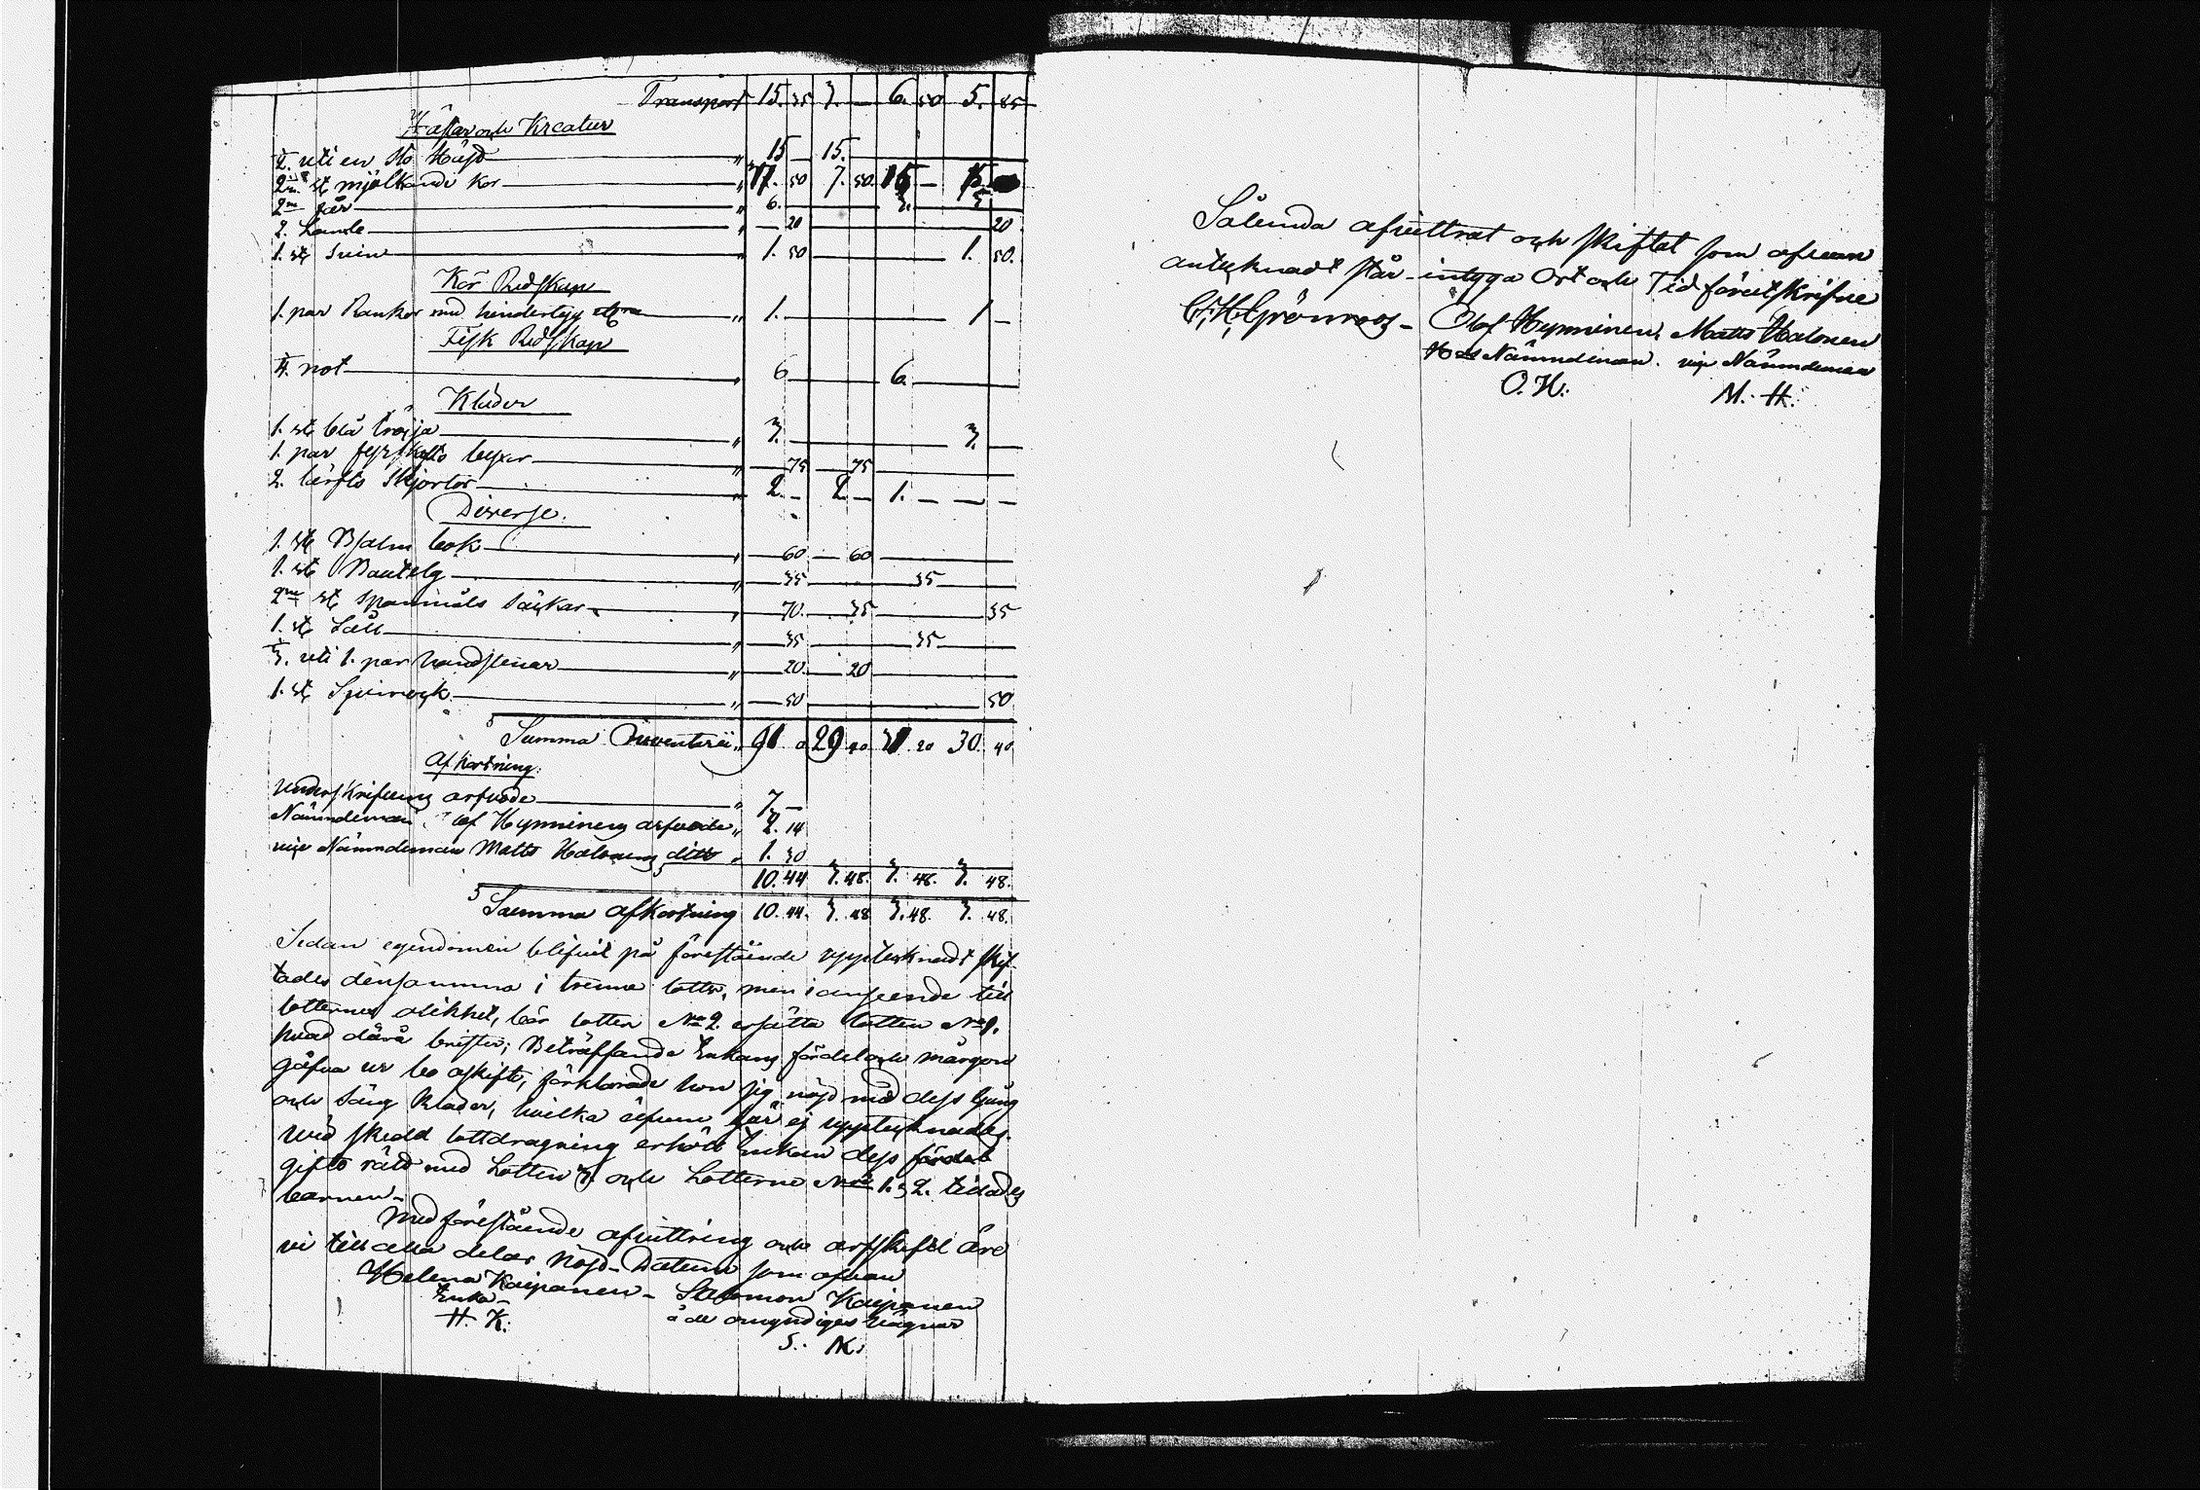 Transport 15. 35 3. — 6. 50 5. 85
Hästar och Kreatur
uti en Sto Häst " 15 — 15.
2ne st mjölkande kor " 17. 50 7. 50 15 — 15
2ne får " 6. 3. 3.
2. Lamb " — 20 20
1. st Svin " 1. 50 1. 50.
Kör Redskap
1. par Rankor med hindertyg " 1. 1 —
Fisk Redskap
not " 6 6.
Kläder
1. st blå tröija " 3. 3. —
1. par byxor " — 75 — 75
2. lärfts Skjortor " 2. — 2 — 1. — — —
Diverse.
1. st Psalm bok " — 60 — 60
1. st " — 35 35
2ne st Spanmåls säckar " — 70. 35 35
1. st Såll " — 35 35
uti 1. par handstenar " — 20. 20
1. st Spinrock " — 50 50
Summa Inventarii " 91. 0 29 40 31 20 30. 40
Afkortning:
Underskrifvens arfvode " 7 —
Nämndeman Olof Hynninens arfvode " 2. 14
vice Nämndeman Matts Halonens ditto " 1. 30
10. 44 3. 48. 3. 48. 3. 48.
Summa afkortning 10. 44. 3. 48 3. 48. 3. 48.
Sedan egendomen blifvit på förestående upptecknadt skif-
tades densamma i trenne lotter, men i anseende till
lotternes olikhet, bör lotten No 2. ersätta lotten No 1.
hvad därå brister; Beträffande Enkans fördel och morgon
gåfva ur bo oskifto, förklarade hon sig nöjd med dess
och Säng kläder, hvilka äfven här ej upptecknades.
Wid skedd lottdragning erhöll Enkan dess fördel
gifto rätt med Lotten 3. och Lotterne No 1. 2. tillades
barnen.
Med förestående afvittring och arfskifte äro
vi till alla delar nöjd. Datum som ofvan
Helena Kaipanen — Salomon Kaipanen
Enka — å de omyndigas vägnar
H. K. S. K.
Sålunda afvittrat och skiftat som ofvan
antecknadt står — intyga Ort och Tid förutskrifne
C. H. Grönroos — Olof Hynninen. Matts Halonen
Nämndeman. vice Nämndeman
O. H. M. H.